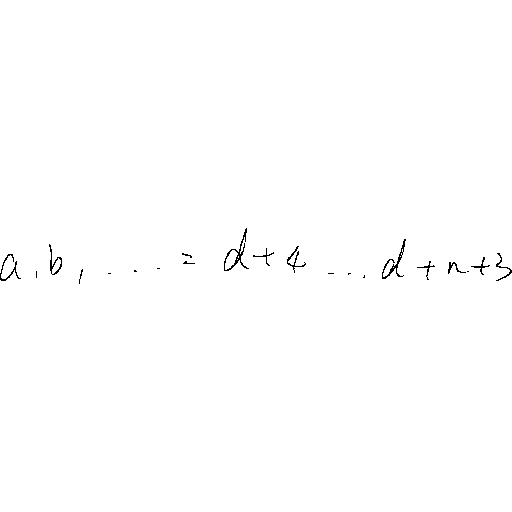 a, b, .... = d + 4 ... d + n + 3